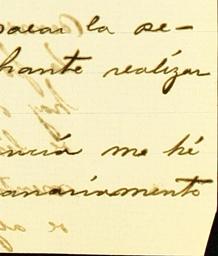 pasar la se-
hante realizar
ncia me hé
anariamente